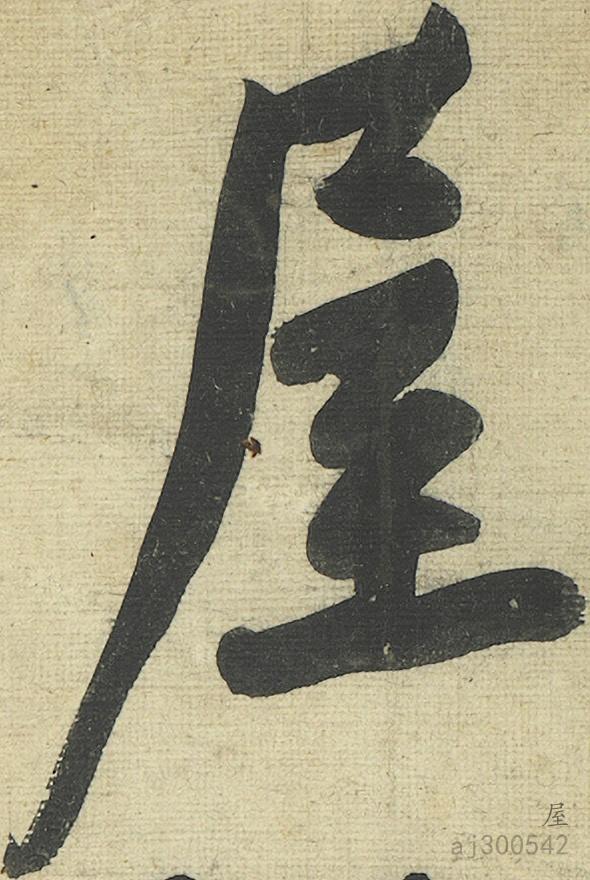 屋
屋
aj300542